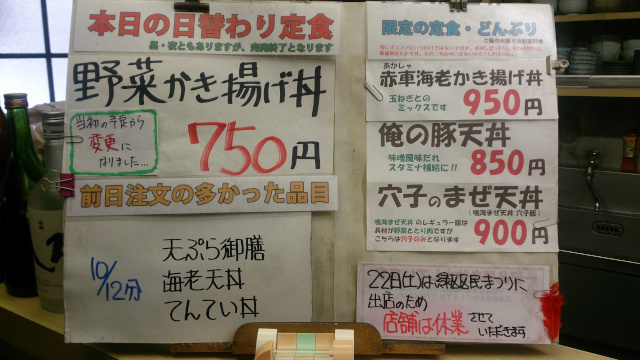 本日の日替わり定食
昼・夜ともありますが、完売終了となります
野菜かき揚げ丼
当初の予定から
変更に
なりました…
750円
前日注文の多かった品目
10/12分
天ぷら御膳
海老天丼
てんてい丼
限定の定食・どんぶり
あかしゃ
赤車海老かき揚げ丼
玉ねぎとの
ミックスです
950円
俺の豚天丼
味噌風味だれ
スタミナ補給に!!
850円
穴子のまぜ天丼
(鳴海まぜ天丼 穴子版)
鳴海まぜ天丼 のレギュラー版は
具材が野菜ととり肉ですが
こちらは穴子のみとなります
900円
22日(土)は緑区区民まつりに
出店のため
店舗は休業させて
いただきます